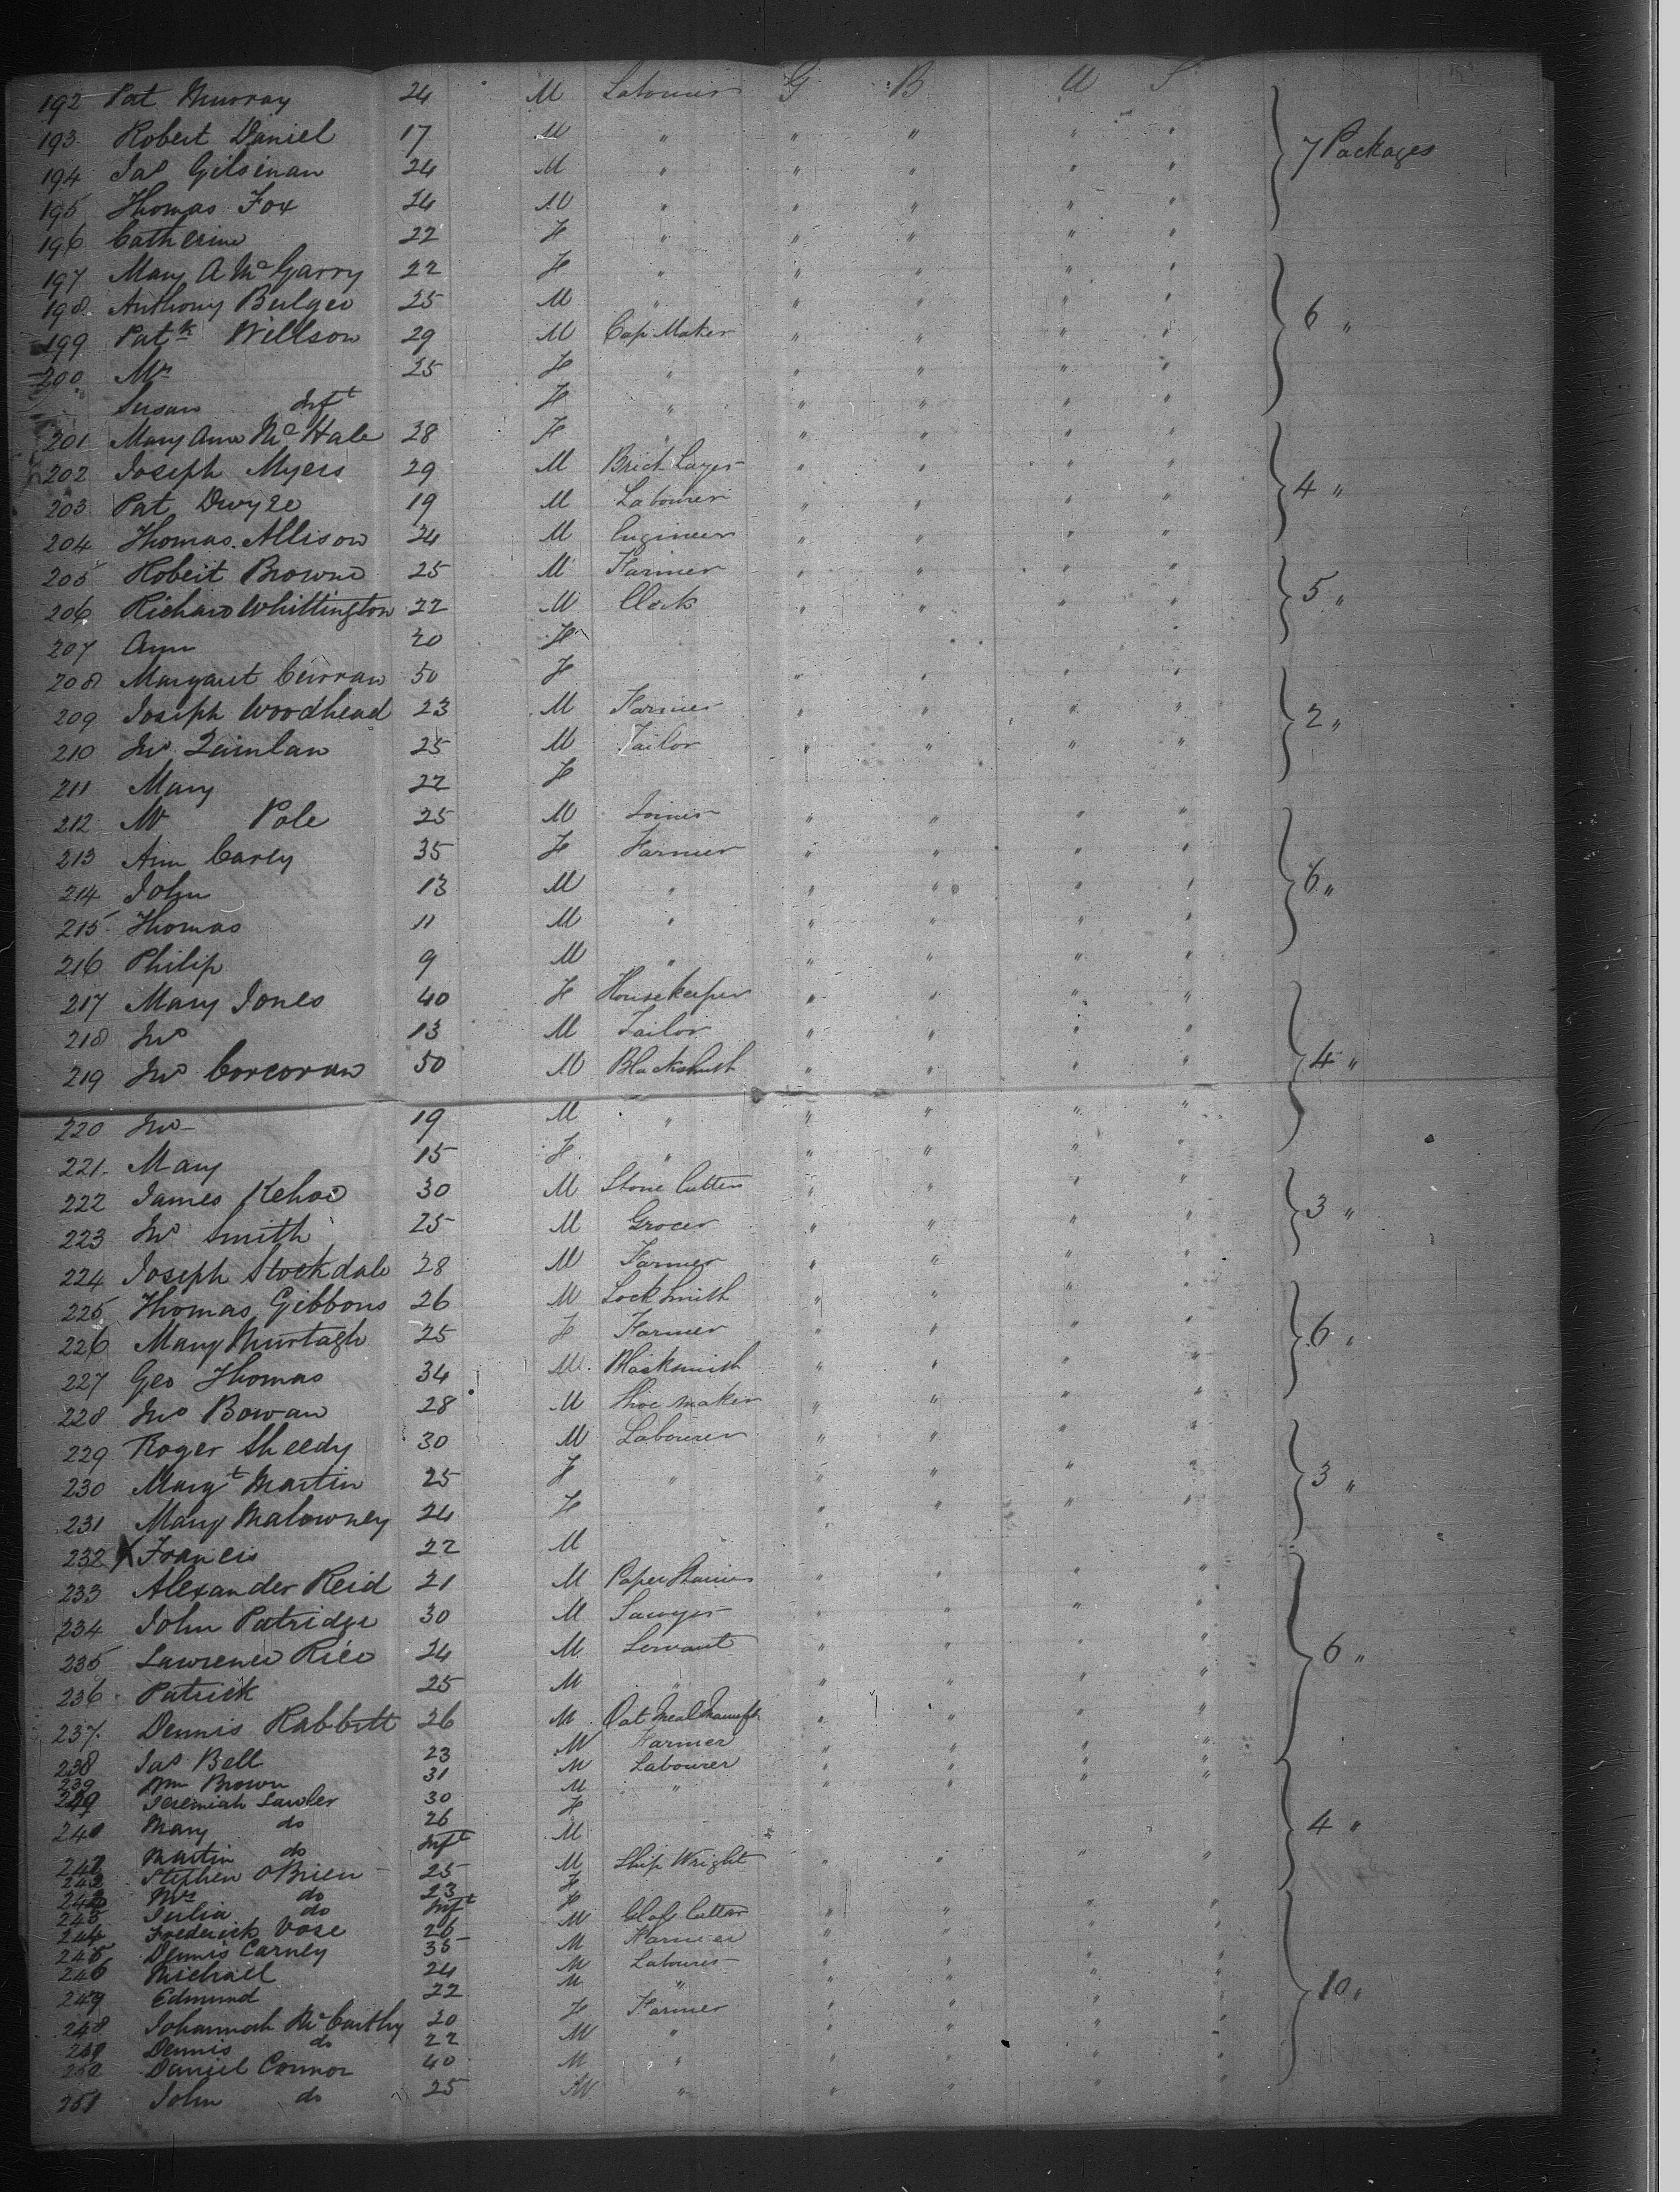 192 Pat Murray 24 M Labourer G B U S
193 Robert Daniel 17 M " " " " " 7 Packages
194 Jas Gilsinan 24 M " " " " "
195 Thomas Fox 24 M " " " " "
196 Catherine 22 F " " " " "
197 Mary A McGarry 22 F " " " " "
198 Anthony Bulger 25 M " " " " "
199 Patk Willson 29 M Cap Maker " " " " 6 "
200 Mrs 25 F " " " " "
Susan Inft F " " " " "
201 Mary Ann McHale 28 F " " " " "
202 Joseph Myers 29 M Brick Layer " " " "
203 Pat Dwyre 19 M Labourer " " " " 4 "
204 Thomas Allison 24 M Engineer " " " "
205 Robert Browne 25 M Farmer " " " "
206 Richard Whittington 22 M Clerk " " " " 5 "
207 Ann 20 F
208 Margaret Curran 50 F " " " "
209 Joseph Woodhead 23 M Farmer " " " " 2 "
210 Jno Quinlan 25 M Tailor " " " "
211 Mary 22 F
212 Mr Pole 25 M Joiner " " " "
213 Ann Carly 35 F Farmer " " " "
214 John 13 M " " " " " 6 "
215 Thomas 11 M " " " " "
216 Philip 9 M " " " " "
217 Mary Jones 40 F Housekeeper " " " "
218 Jno 13 M Tailor " " " "
219 Jno Corcoran 50 M Blacksmith " " " " 4 "
220 Jno 19 M " " " " "
221 Mary 15 F " " " " "
222 James Kehoe 30 M Stone Cutter " " " "
223 Jno Smith 25 M Grocer " " " " 3 "
224 Joseph Stockdale 28 M Farmer " " " "
225 Thomas Gibbons 26 M Lock Smith " " " "
226 Mary Murtagh 25 F Farmer " " " " 6 "
227 Geo Thomas 34 M Blacksmith " " " "
228 Jno Bowan 28 M Shoe maker " " " "
229 Roger Sheedy 30 M Labourer " " " "
230 Margt Martin 25 F " " " " " 3 "
231 Mary Malowney 24 F " " " "
232 X Francis 22 M
233 Alexander Reid 21 M Paper Stainer " " " "
234 John Patridge 30 M Sawyer " " " "
235 Lawrence Rice 24 M Servant " " " " 6 "
236 Patrick 25 M " " " " "
237 Dennis Rabbitt 26 M Oat Meal Manuft " " " "
238 Jas Bell 23 M Farmer " " " "
239 Wm Brown 31 M Labourer " " " "
240 Jeremiah Lawler 30 M "
241 Mary do 26 F 4 "
Martin do Inft M
242 Stephen OBrien 25 M Ship Wright " " " "
243 Mrs do 23 F
Julia do Inft F
244 Frederick Vose 26 M Glass Cutter " " " "
245 Dennis Carney 35 M Farmer " " " "
246 Michael 24 M Labourer " " " "
247 Edmund 22 M " " " " " 10 "
248 Johannah McCarthy 20 F Farmer " " " "
249 Dennis do 22 M " " " " "
250 Daniel Connor 40 M " " " " "
251 John do 25 M " " " " "